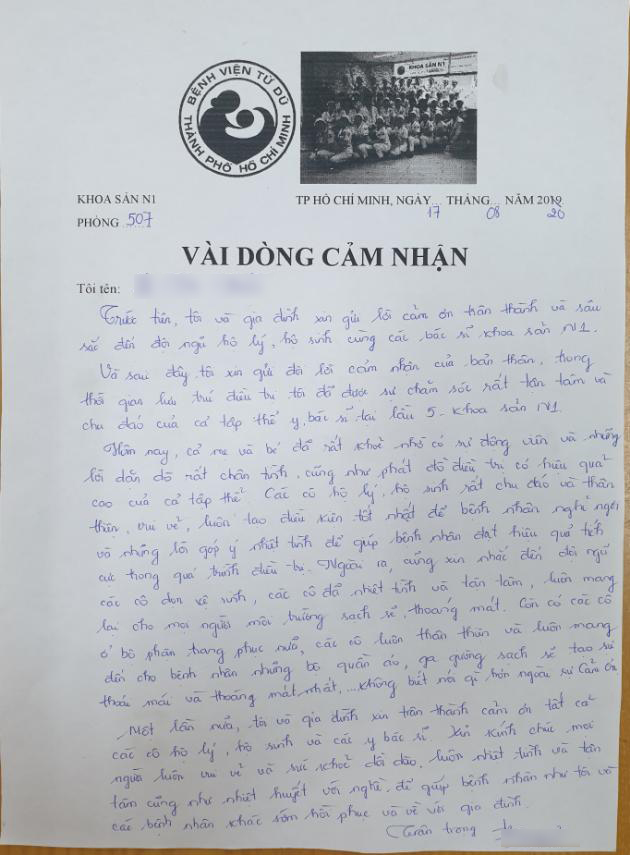 BỆNH VIỆN TỪ DŨ
THÀNH PHỐ HỒ CHÍ MINH
KHOA SẢN N1
KHOA SẢN N1
TP HỒ CHÍ MINH, NGÀY 17 THÁNG 08 NĂM 2019 20
PHÒNG 507
VÀI DÒNG CẢM NHẬN
Tôi tên:
Trước tiên, tôi và gia đình xin gửi lời cảm ơn trân thành và sâu
sắc đến đội ngũ hộ lý, hộ sinh cùng các bác sĩ khoa sản N1.
Và sau đây tôi xin gửi đôi lời cảm nhận của bản thân, trong
thời gian lưu trú điều trị tôi đã được sự chăm sóc rất tận tâm và
chu đáo của cả tập thể y, bác sĩ tại lầu 5 - Khoa sản N1.
Hôm nay, cả mẹ và bé đã rất khoẻ nhờ có sự động viên và những
lời dặn dò rất chân tình, cũng như phát đồ điều trị có hiệu quả
cao của cả tập thể. Các cô hộ lý, hộ sinh rất chu đáo và thân
thiện, vui vẻ, luôn tạo điều kiện tốt nhất để bệnh nhân nghỉ ngơi
và những lời góp ý nhiệt tình để giúp bệnh nhân đạt hiệu quả tích
cực trong quá trình điều trị. Ngoài ra, cũng xin nhắc đến đội ngũ
các cô dọn vệ sinh, các cô đã nhiệt tình và tận tâm, luôn mang
lại cho mọi người môi trường sạch sẽ, thoáng mát. Còn có các cô
ở bộ phận trang phục nữa, các cô luôn thân thiện và luôn mang
đến cho bệnh nhân những bộ quần áo, ga giường sạch sẽ tạo sự
thoải mái và thoáng mát nhất, ... không biết nói gì hơn ngoài sự Cảm ơn
Một lần nữa, tôi và gia đình xin trân thành cảm ơn tất cả
các cô hộ lý, hộ sinh và các y bác sĩ. Xin kính chúc mọi
người luôn vui vẻ và sức khoẻ dồi dào, luôn nhiệt tình và tận
tâm cũng như nhiệt huyết với nghề, để giúp bệnh nhân như tôi và
các bệnh nhân khác sớm hồi phục và về với gia đình.
Trân trọng